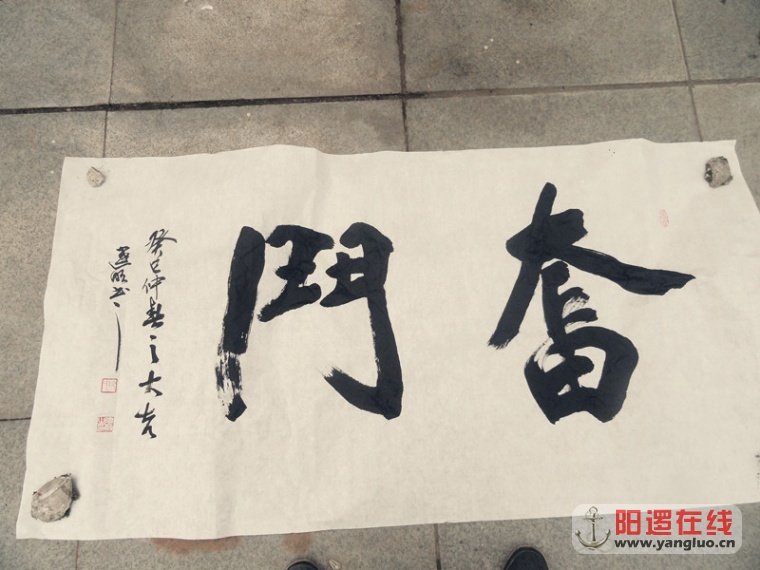 奮鬥
癸巳仲春之大吉
阳逻在线
www.yangluo.cn